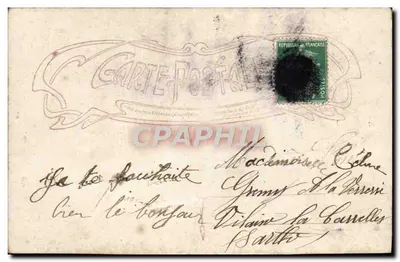 CARTE POSTALE
REPUBLIQUE FRANCAISE
CPAPHIL
Mademoiselle
Je te souhaite
A la Verrerie
bien le bonjour
Vilaine la Carrelles
Sarthe